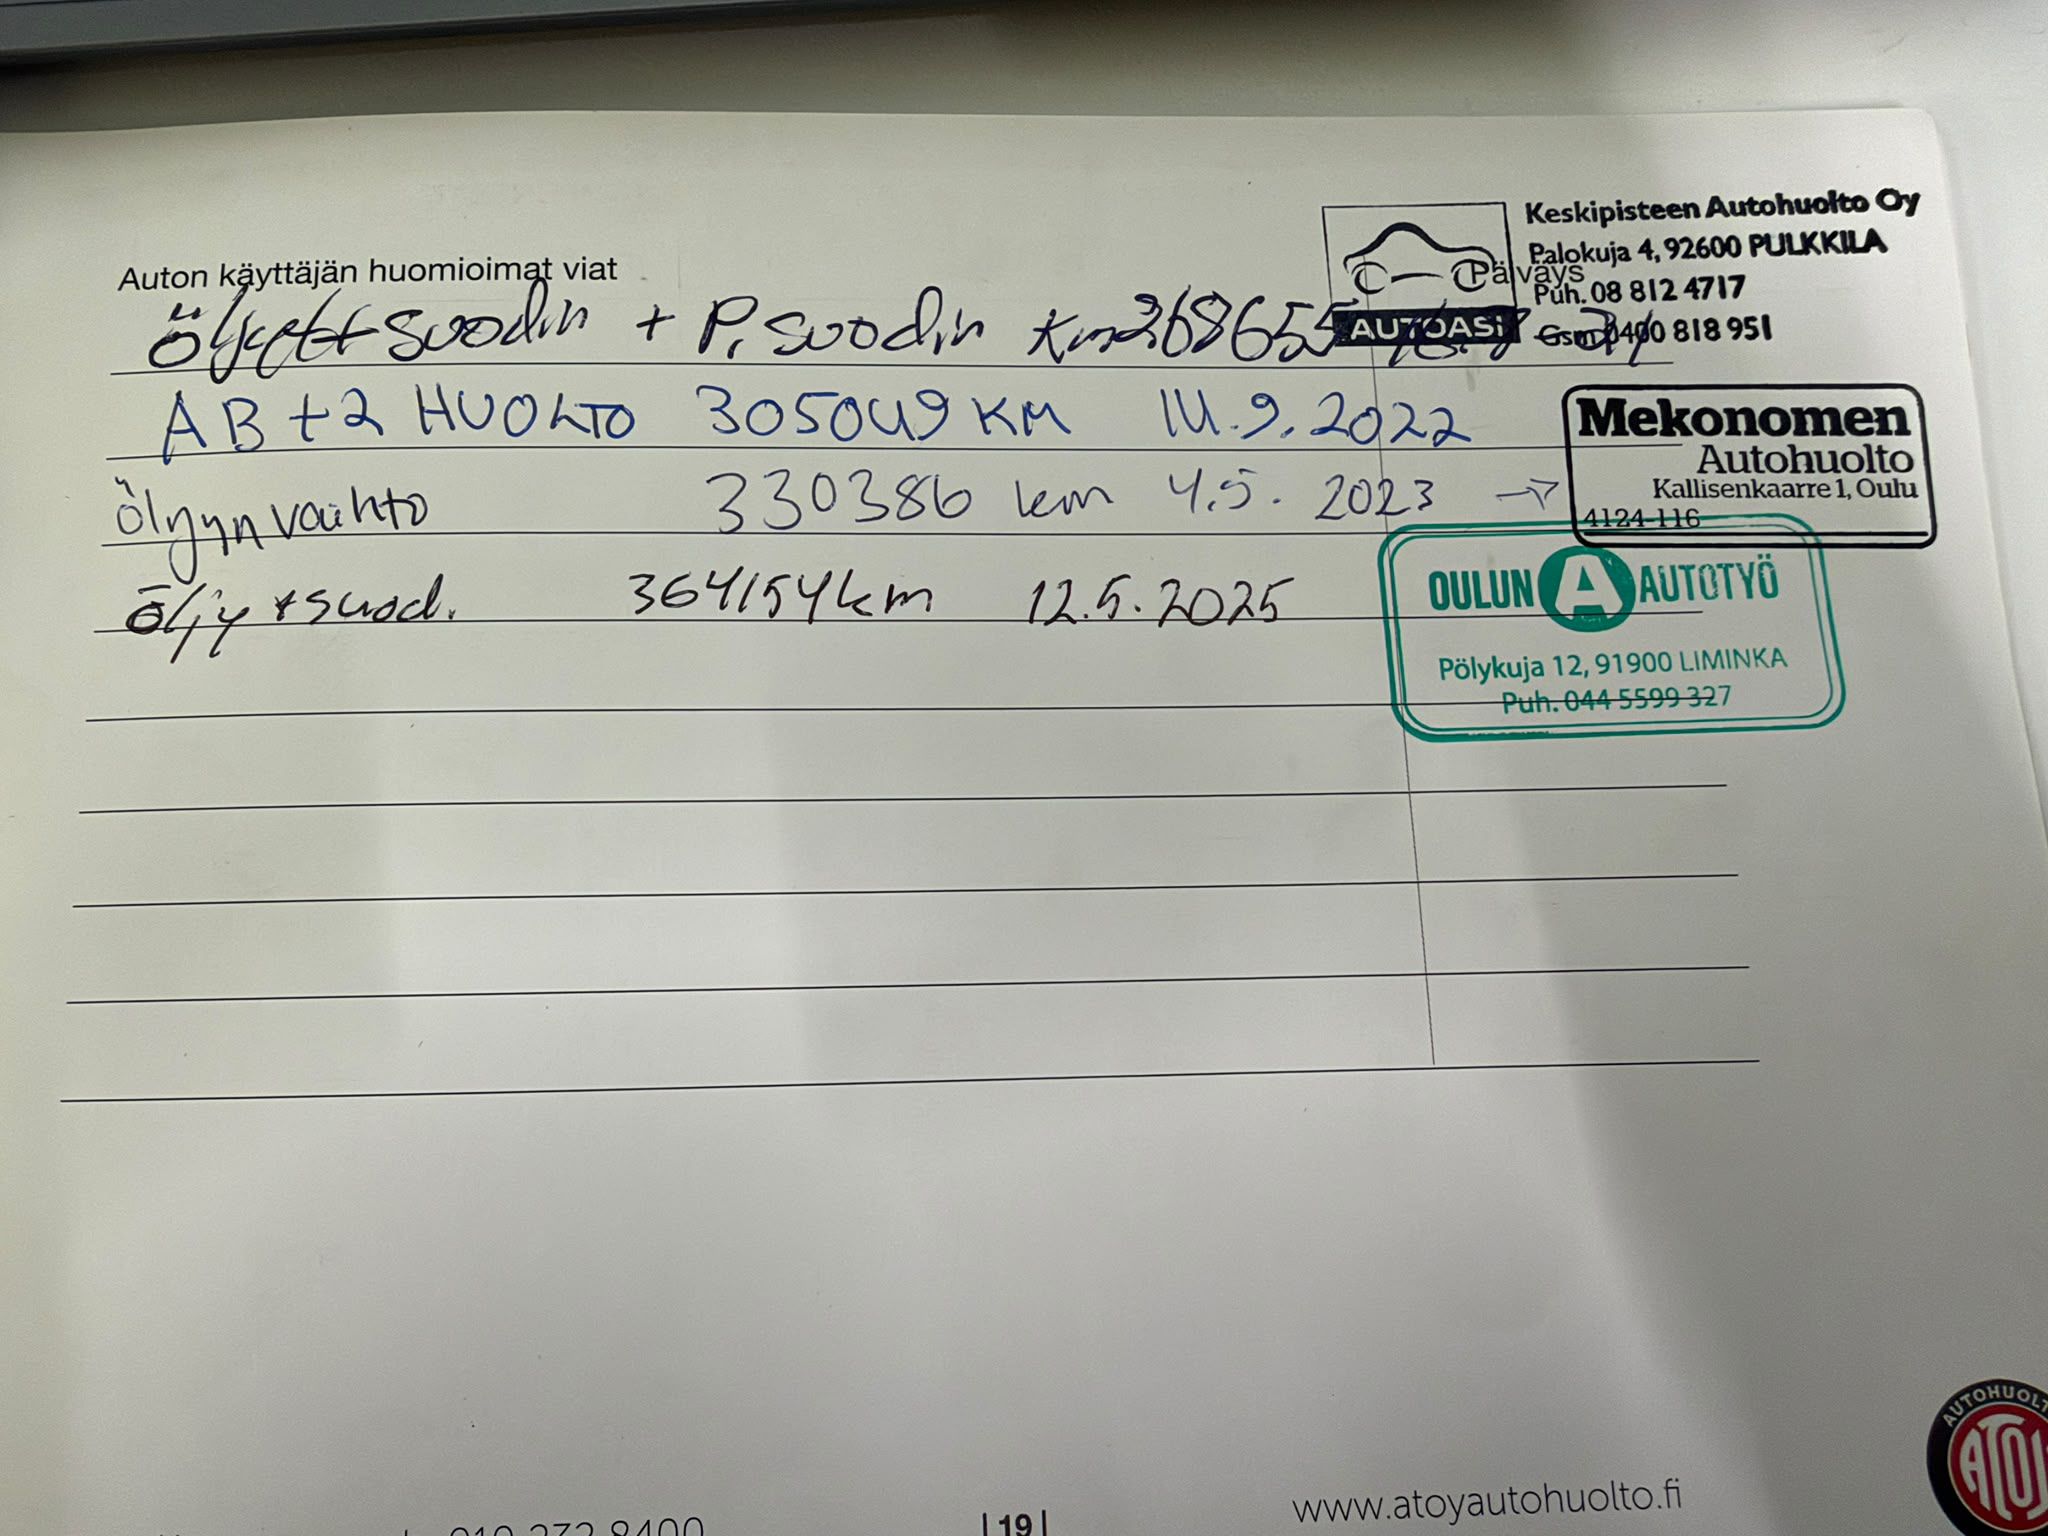 Keskipisteen Autohuolto Oy
Palokuja 4, 92600 PULKKILA
Auton käyttäjän huomioimat viat
Päiväys
Puh. 08 812 4717
AUTOASI
Gsm 0400 818 951
suodin + P. suodin Km 268655
AB + 2 HUOLTO 305049 KM 14.9.2022
Mekonomen
Autohuolto
Kallisenkaarre 1, Oulu
4124-116
Öljyn vaihto 330386 km 4.5. 2023 →
OULUN A AUTOTYÖ
Öljy + suod. 364154 km 12.5.2025
Pölykuja 12, 91900 LIMINKA
Puh. 044 5599 327
www.atoyautohuolto.fi
|19|
AUTOHUOLT
ATOY